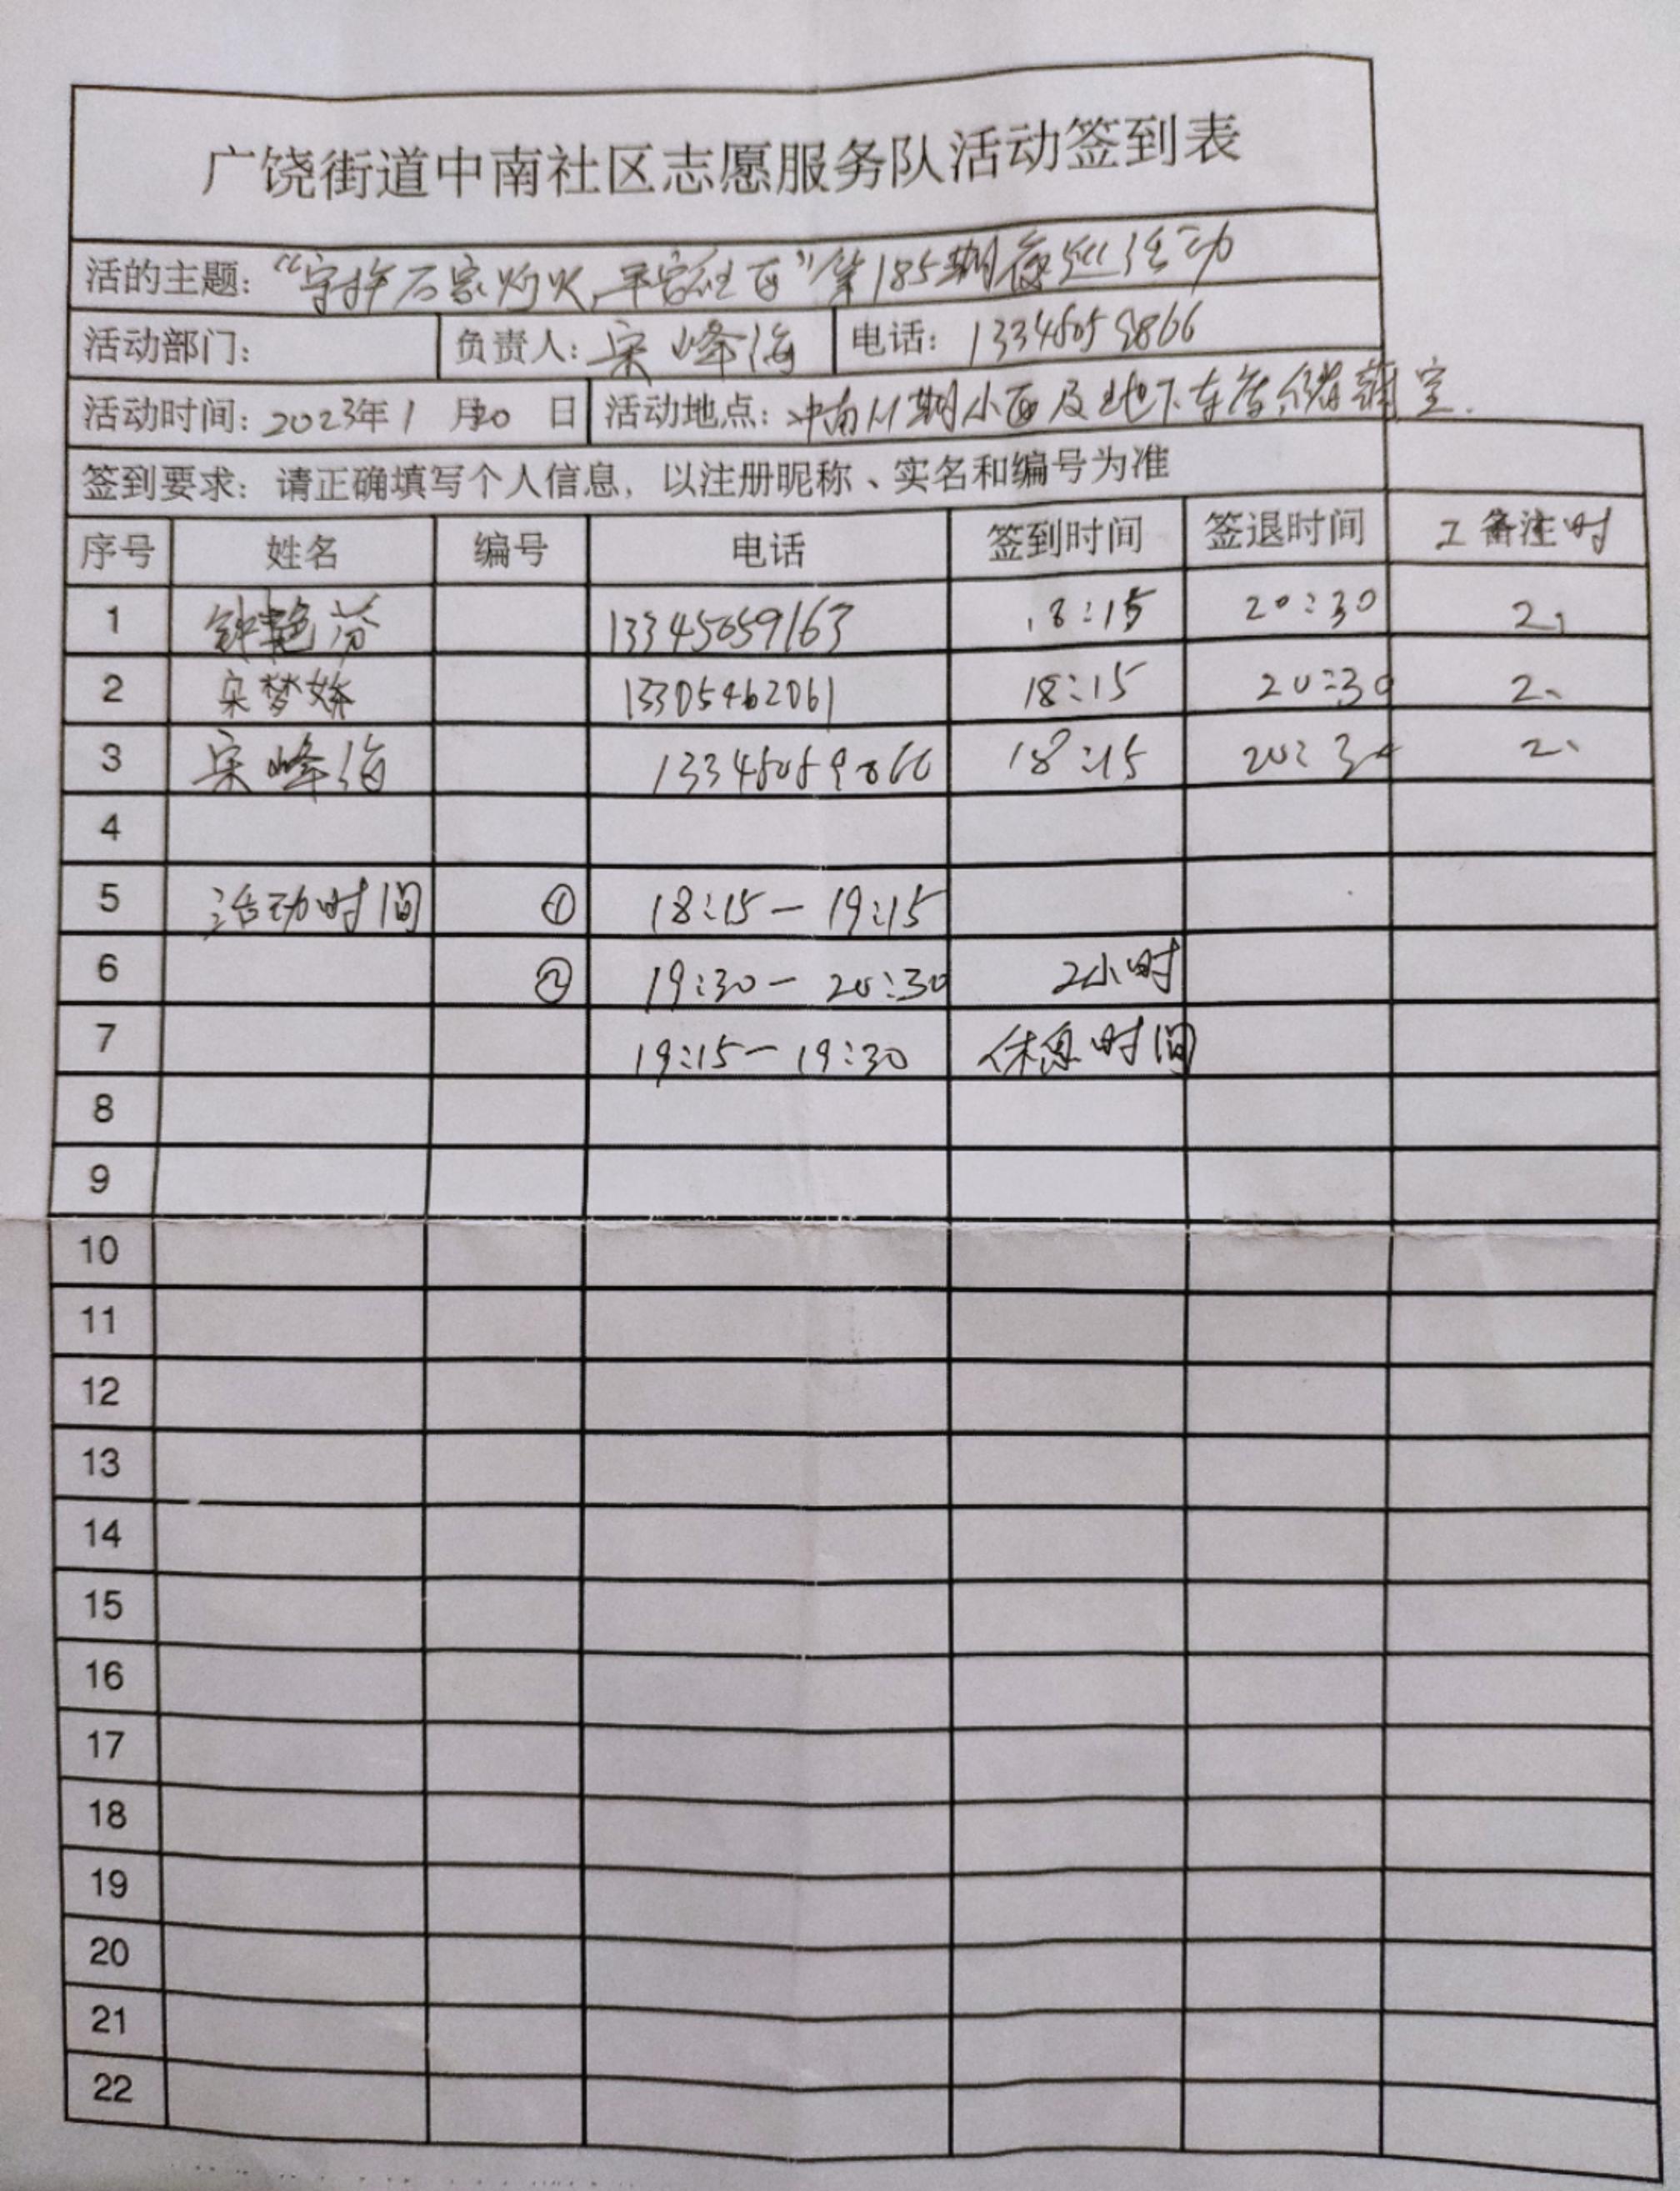 广饶街道中南社区志愿服务队活动签到表
活的主题：“守护万家灯火，平安社区”第185期夜巡活动
活动部门： 负责人：宋峰海 电话：
活动时间：2023年1月20日 活动地点：中南 期小区及地下车库储藏室.
签到要求：请正确填写个人信息，以注册昵称、实名和编号为准
序号 姓名 编号 电话 签到时间 签退时间 工备注时
1 钟艳芬 13345059163 18:15 20:30 2、
2 宋梦娇 13305462061 18:15 20:30 2、
3 宋峰海 18:15 20:30 2、
4
5 活动时间 ① 18:15－19:15
6 ② 19:30－20:30 2小时
7 19:15－19:30 休息时间
8
9
10
11
12
13
14
15
16
17
18
19
20
21
22